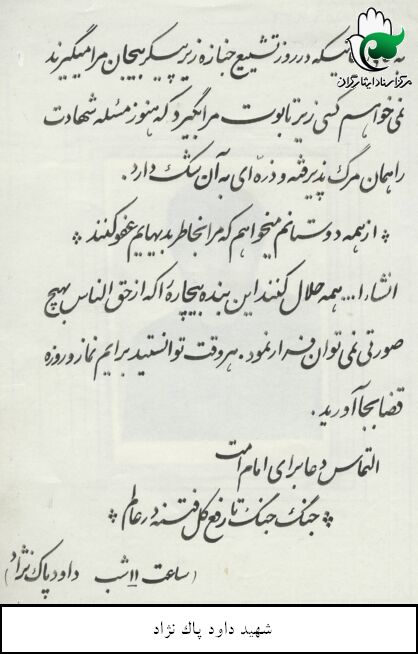 مرکز اسناد ایثارگران
که در روز تشییع جنازه زیر پیکر بیجان مرا میگیرند
نمی خواهم کسی زیر تابوت مرا بگیرد که هنوز مسئله شهادت
را همان مرگ پذیرفته و ذره ای به آن شک دارد.
* از همه دوستانم میخواهم که مرا بخاطر بدیهایم عفو کنند *
انشاءا... همه حلال کنند این بنده بیچاره را که از حق الناس بهیچ
صورتی نمی توان فرار نمود. هر وقت توانستید برایم نماز و روزه
قضا بجا آورید.
التماس دعا برای امام امت
* جنگ جنگ تا رفع کل فتنه در عالم *
(ساعت ۱۱ شب داود پاک نژاد)
شهید داود پاك نژاد